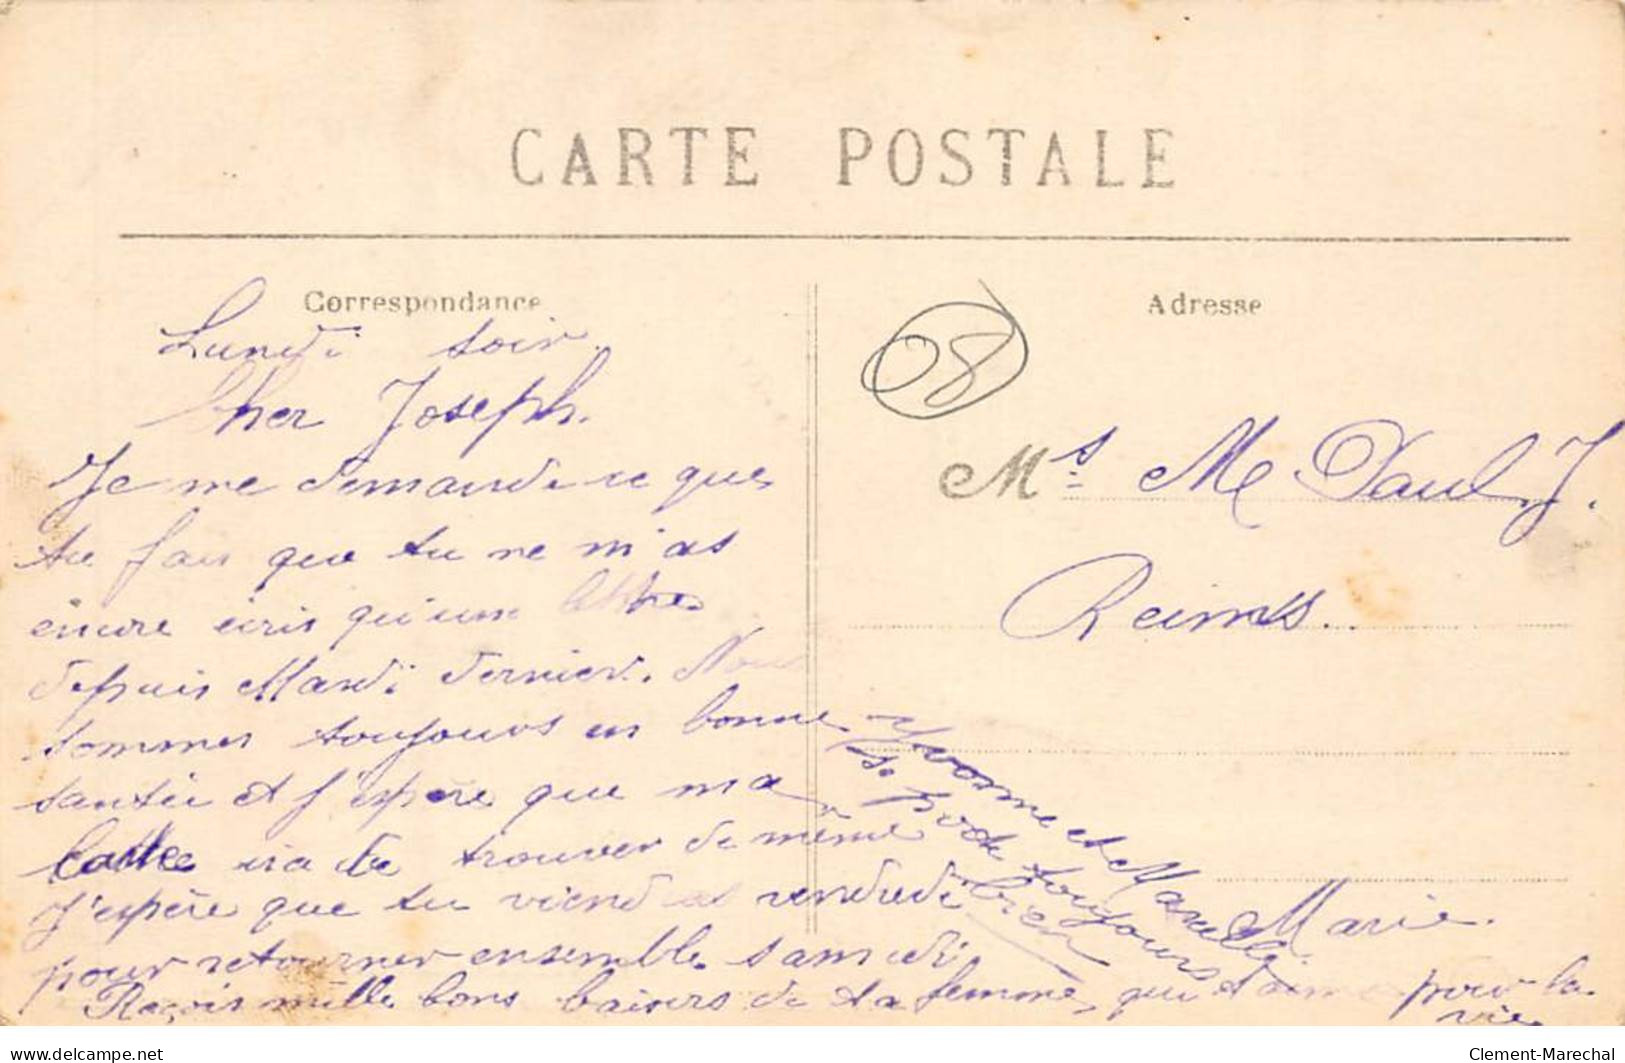 CARTE POSTALE
Correspondance
Lundi soir
Cher Joseph.
Je me demande ce que
tu fais que tu ne m'as
encore écris qu'une lettre
depuis Mardi dernier. Nous
sommes toujours en bonne
santée et j'espère que ma
carte ira te trouver de même
J'espère que tu viendras vendredi
pour retourner ensemble samedi
Reçois mille bons baisers de ta femme, qui t'aime pour la
vie
Yvonne et Marcelle
se porte toujours
bien
Marie.
Adresse
08
Ms Me Paul J.
Reims.
delcampe.net
Clement-Marechal